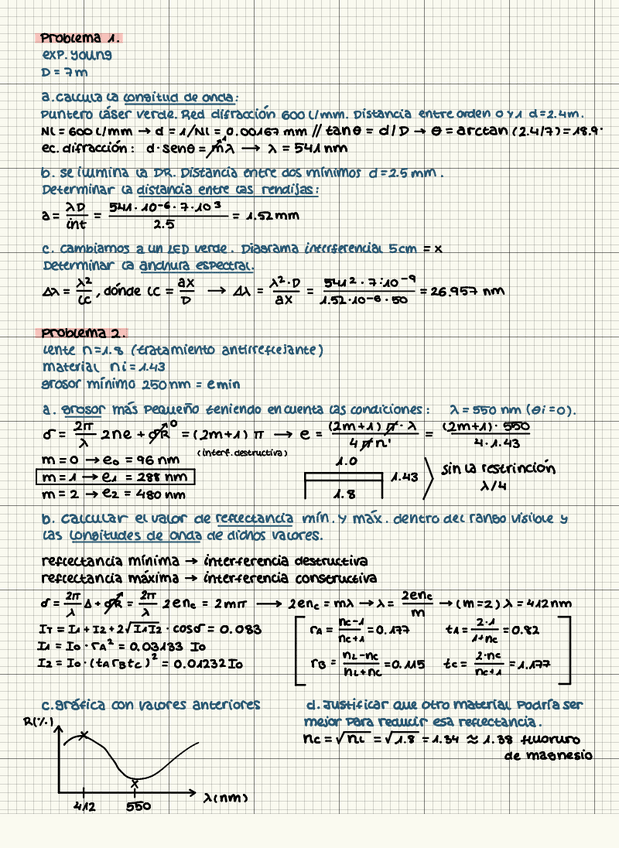 Problema 1.
exp. young
D = 7m
a. calcula la longitud de onda:
Puntero láser verde. Red difracción 600 l/mm. Distancia entre orden 0 y 1 d=2.4m.
Nl = 600 l/mm → d = 1/Nl = 0.00167 mm // tanθ = d/D → θ = arctan (2.4/7) = 18.9°
ec. difracción: d·senθ = mλ → λ = 541 nm
b. se ilumina la DR. Distancia entre dos mínimos d=2.5mm.
Determinar la distancia entre las rendijas:
a = λD/int = 541·10⁻⁶·7·10³/2.5 = 1.52mm
c. cambiamos a un LED verde. Diagrama interferencial 5cm = x
Determinar la anchura espectral.
Δλ = λ²/lc, dónde lc = ax/D → Δλ = λ²·D/ax = 541²·7·10⁻⁹/1.52·10⁻⁶·50 = 26.957 nm
Problema 2.
lente n=1.8 (tratamiento antirreflejante)
material ni=1.43
grosor mínimo 250nm = emin
a. grosor más pequeño teniendo en cuenta las condiciones: λ=550 nm (θi=0).
σ = 2π/λ 2ne + φR⁰ = (2m+1) π → e = (2m+1) π·λ/4πn' = (2m+1)·550/4·1.43
(interf. destructiva)
m = 0 → e₀ = 96 nm
m = 1 → e₁ = 288 nm
m = 2 → e₂ = 480 nm
1.0
1.43
1.8
sin la restrinción
λ/4
b. Calcular el valor de reflectancia mín. y máx. dentro del rango visible y
las longitudes de onda de dichos valores.
reflectancia mínima → interferencia destructiva
reflectancia máxima → interferencia constructiva
σ = 2π/λ Δ + φR = 2π/λ 2enc = 2mπ → 2enc = mλ → λ = 2enc/m → (m=2) λ = 412nm
IT = I1 + I2 + 2√I1I2 · cosσ = 0.083
I1 = I0·rA² = 0.03133 I0
I2 = I0·(tArBtc)² = 0.01232 I0
rA = nc-1/nc+1 = 0.177 t1 = 2·1/1+nc = 0.82
rB = nL-nc/nL+nc = 0.115 tc = 2·nc/nc+1 = 1.177
c. gráfica con valores anteriores
R(%)
412
550
λ(nm)
d. Justificar que otro material podría ser
mejor para reducir esa reflectancia.
nc = √nL = √1.8 = 1.34 ≈ 1.38 fluoruro
de magnesio